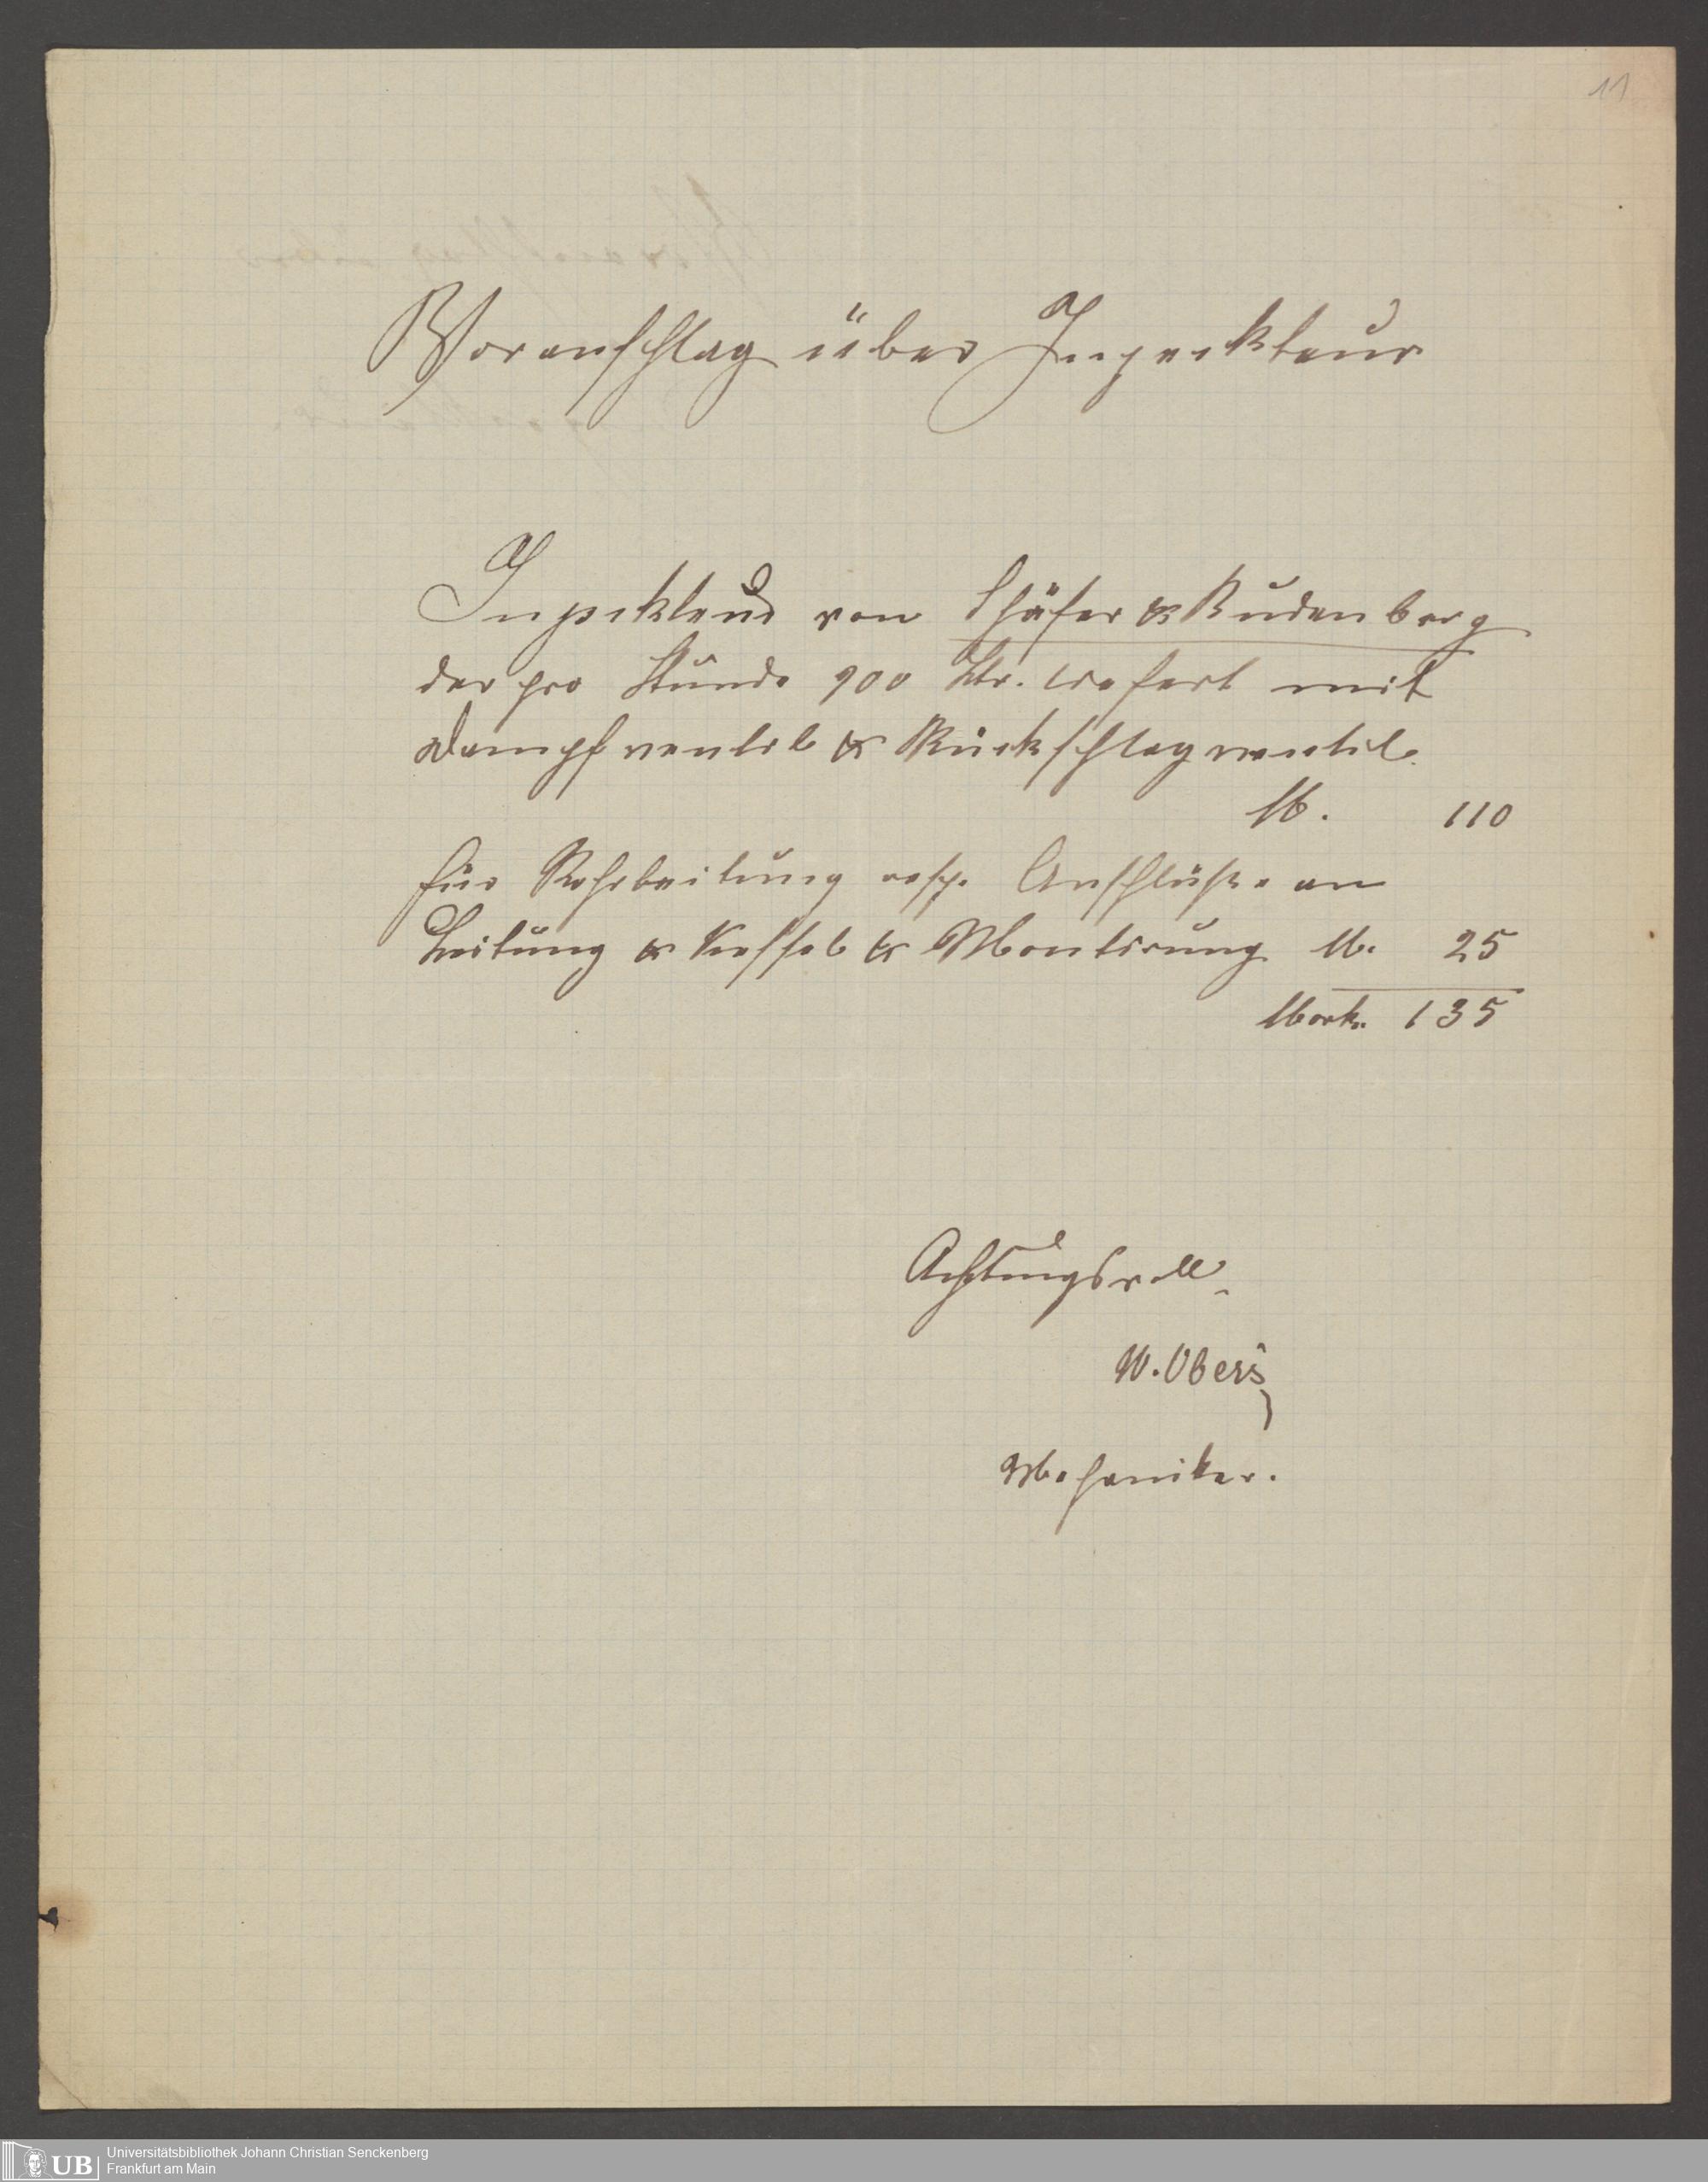 11
Voranschlag über Inspekteur
Inspekteur von Schäfer & Budenberg
der pro Stunde 900 Ltr. liefert mit
Dampfventil & Rückschlagventil.
M. 110
für Rohrleitung resp. Anschlüße an
Leitung & Kessel & Montirung M. 25
Mark. 135
Achtungsvoll
W. Obers
Mechaniker.
UB Universitätsbibliothek Johann Christian Senckenberg
Frankfurt am Main